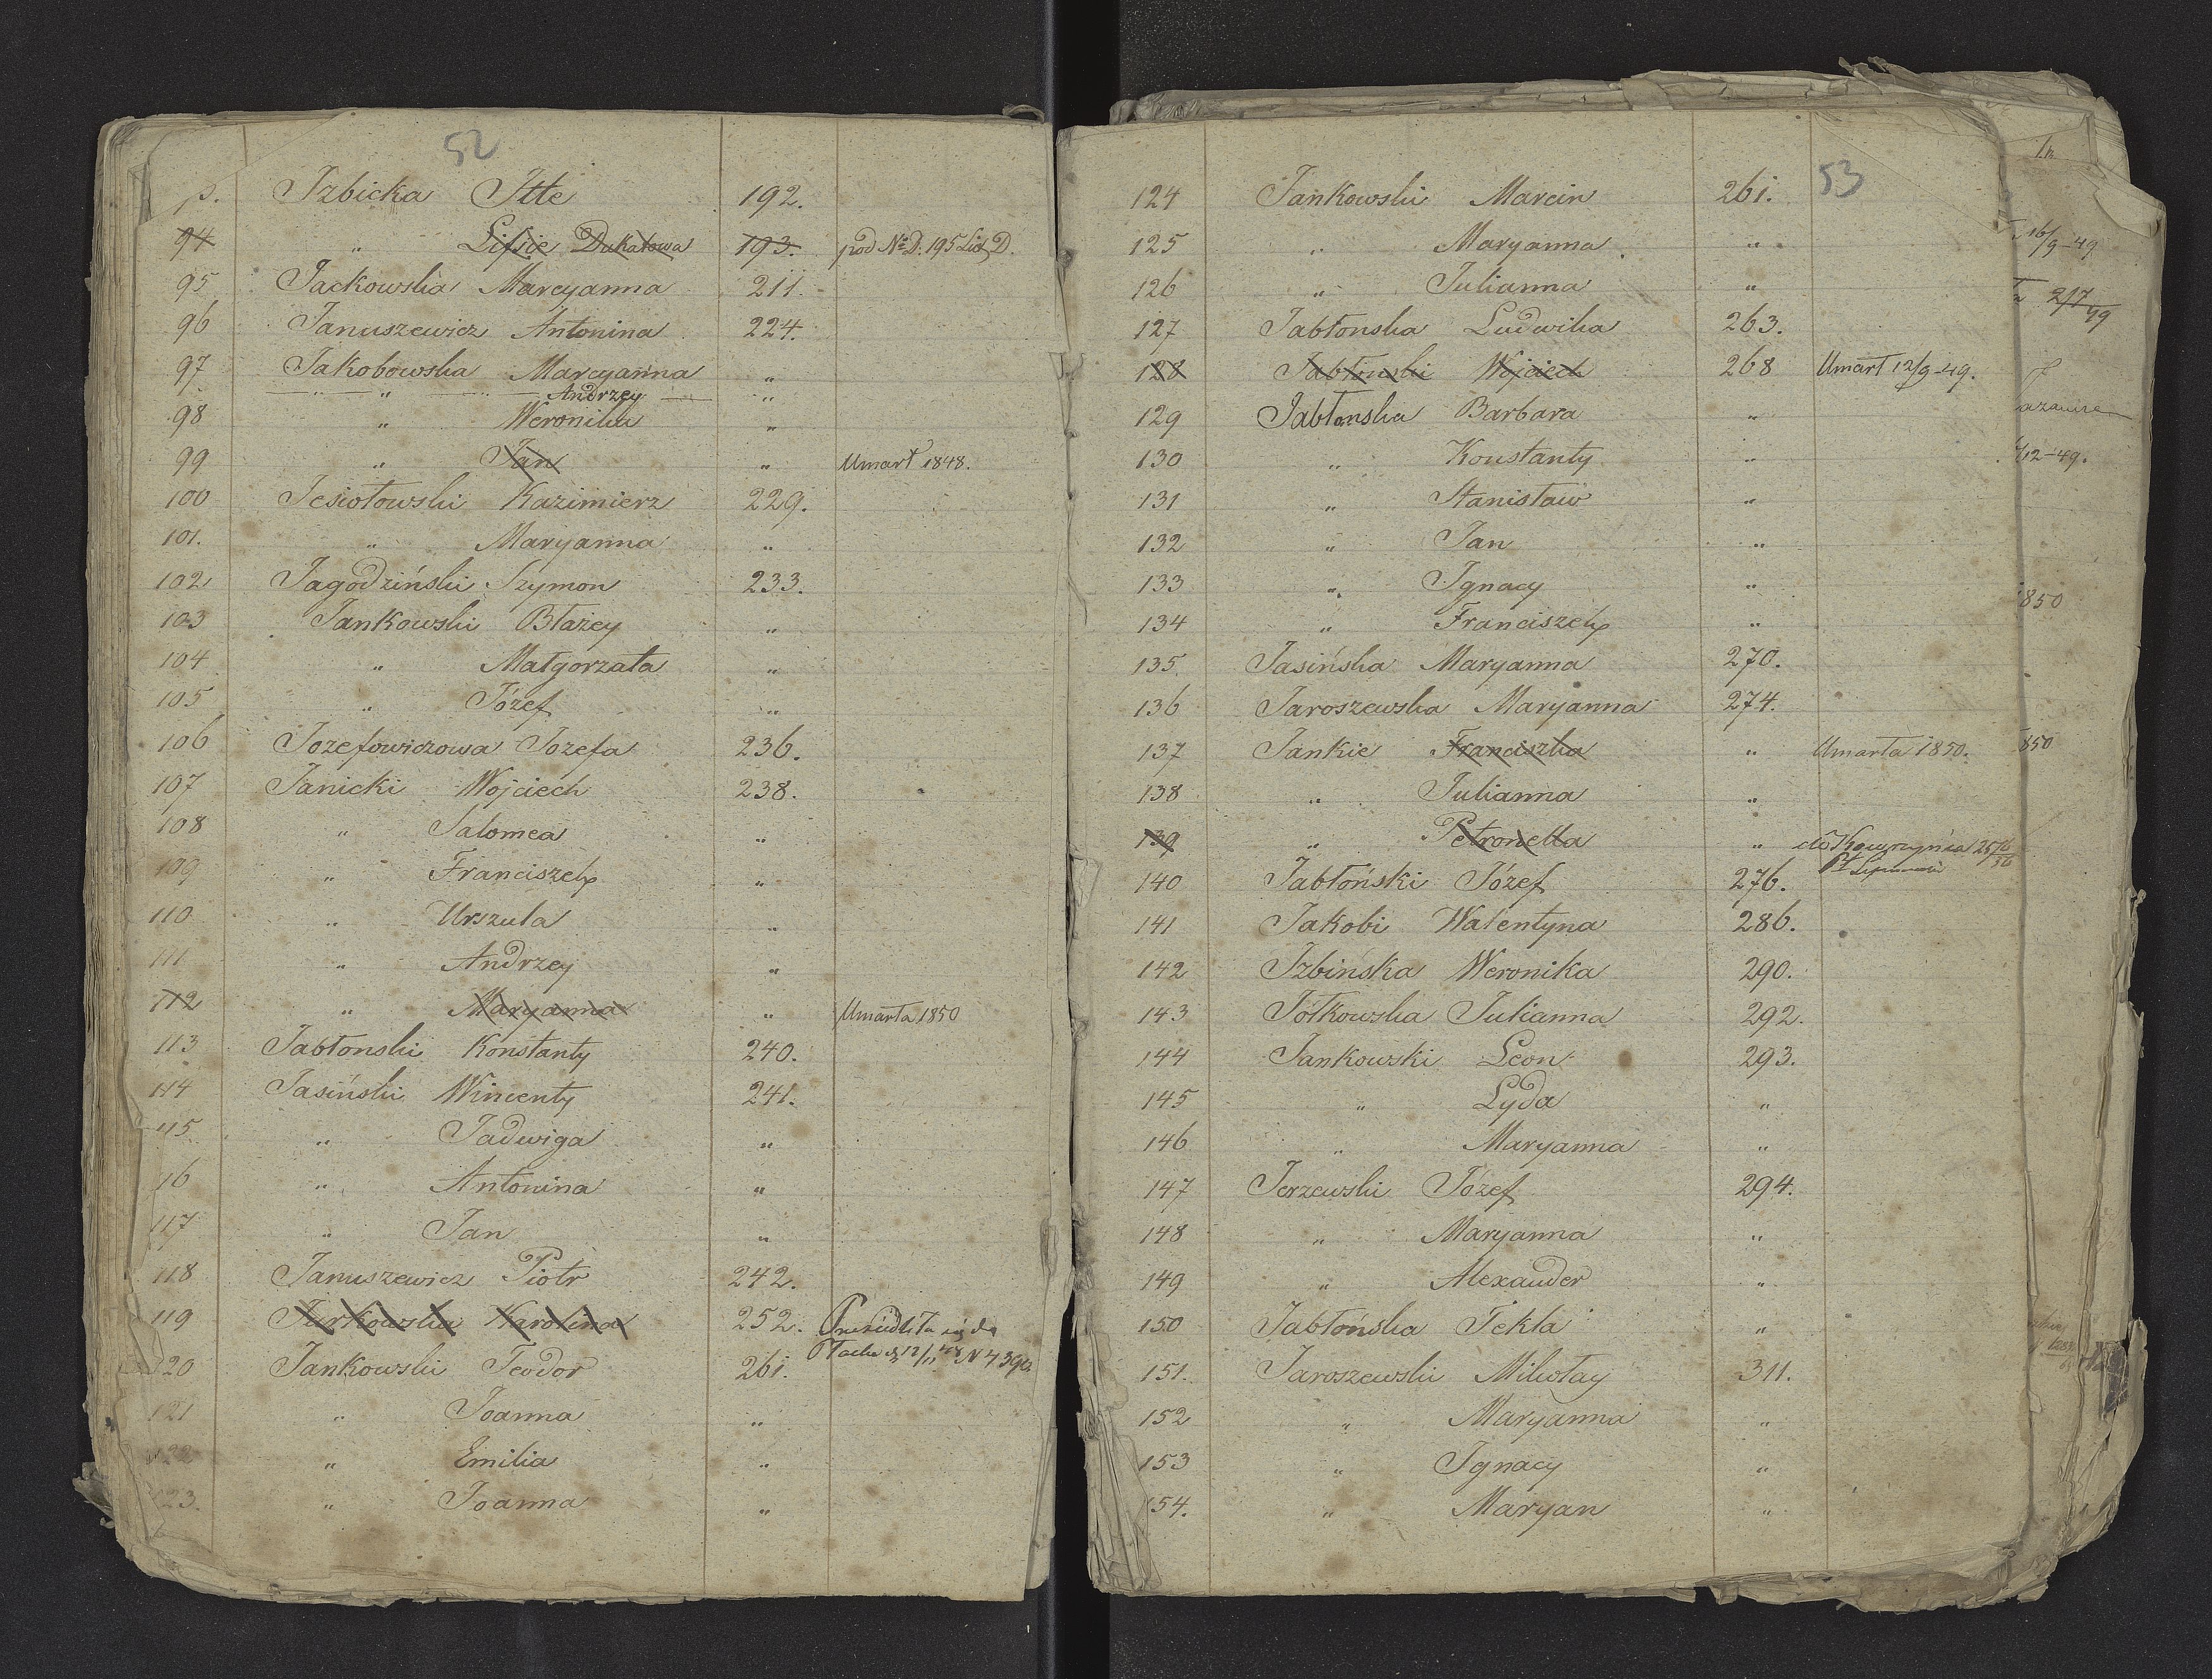 52
p. Izbicka Itte 192.
94 " Lifsie Dukatowa 193. pod No D. 195 Lit D.
95 Jackowska Marcyanna 211.
96 Januszewicz Antonina 224.
97 Jakobowska Marcyanna "
" Andrzey "
98 " Weronika "
99 " Jan " Umarł 1848.
100 Jesiołowski Kazimierz 229.
101. " Maryanna "
102 Jagodziński Szymon 233.
103 Jankowski Błażey "
104 " Małgorzata "
105 " Józef "
106 Jozefowiczowa Jozefa 236.
107 Janicki Wojciech 238.
108 " Salomea "
109 " Franciszek "
110 " Urszula "
111 " Andrzey "
112 " Maryanna " Umarła 1850
113 Jabłonski Konstanty 240.
114 Jasiński Wincenty 241.
115 " Jadwiga "
16 " Antonina "
117 " Jan "
118 Januszewicz Piotr 242.
119 Jurkowska Karolina 252. Przesiedliła się do
120 Jankowski Teodor 261. Płocka N 4390
121 " Joanna "
122 " Emilia "
123. " Joanna "
53
124 Jankowski Marcin 261.
125 " Maryanna "
126 " Julianna "
127 Jabłonska Ludwika 263.
128 Jabłonski Wojciech 268 Umarł 12/9-49.
129 Jabłonska Barbara "
130 " Konstanty "
131 " Stanisław "
132 " Jan "
133 " Ignacy "
134 " Franciszek "
135. Jasińska Maryanna 270.
136 Jaroszewska Maryanna 274.
137 Jankie Franciszka " Umarła 1850.
138 " Julianna "
139 " Petronella " do
140 Jabłoński Józef 276.
141 Jakobi Walentyna 286.
142 Izbińska Weronika 290.
143 Jółkowska Julianna 292.
144 Jankowski Leon 293.
145 " Lyda "
146 " Maryanna "
147 Jerzewski Józef 294.
148 " Maryanna "
149 " Alexander "
150 Jabłońska Tekla "
151. Jaroszewski Mikołay 311.
152 " Maryanna "
153 " Ignacy "
154. " Maryan "
16/9-49
2/7 49
12-49.
850
850